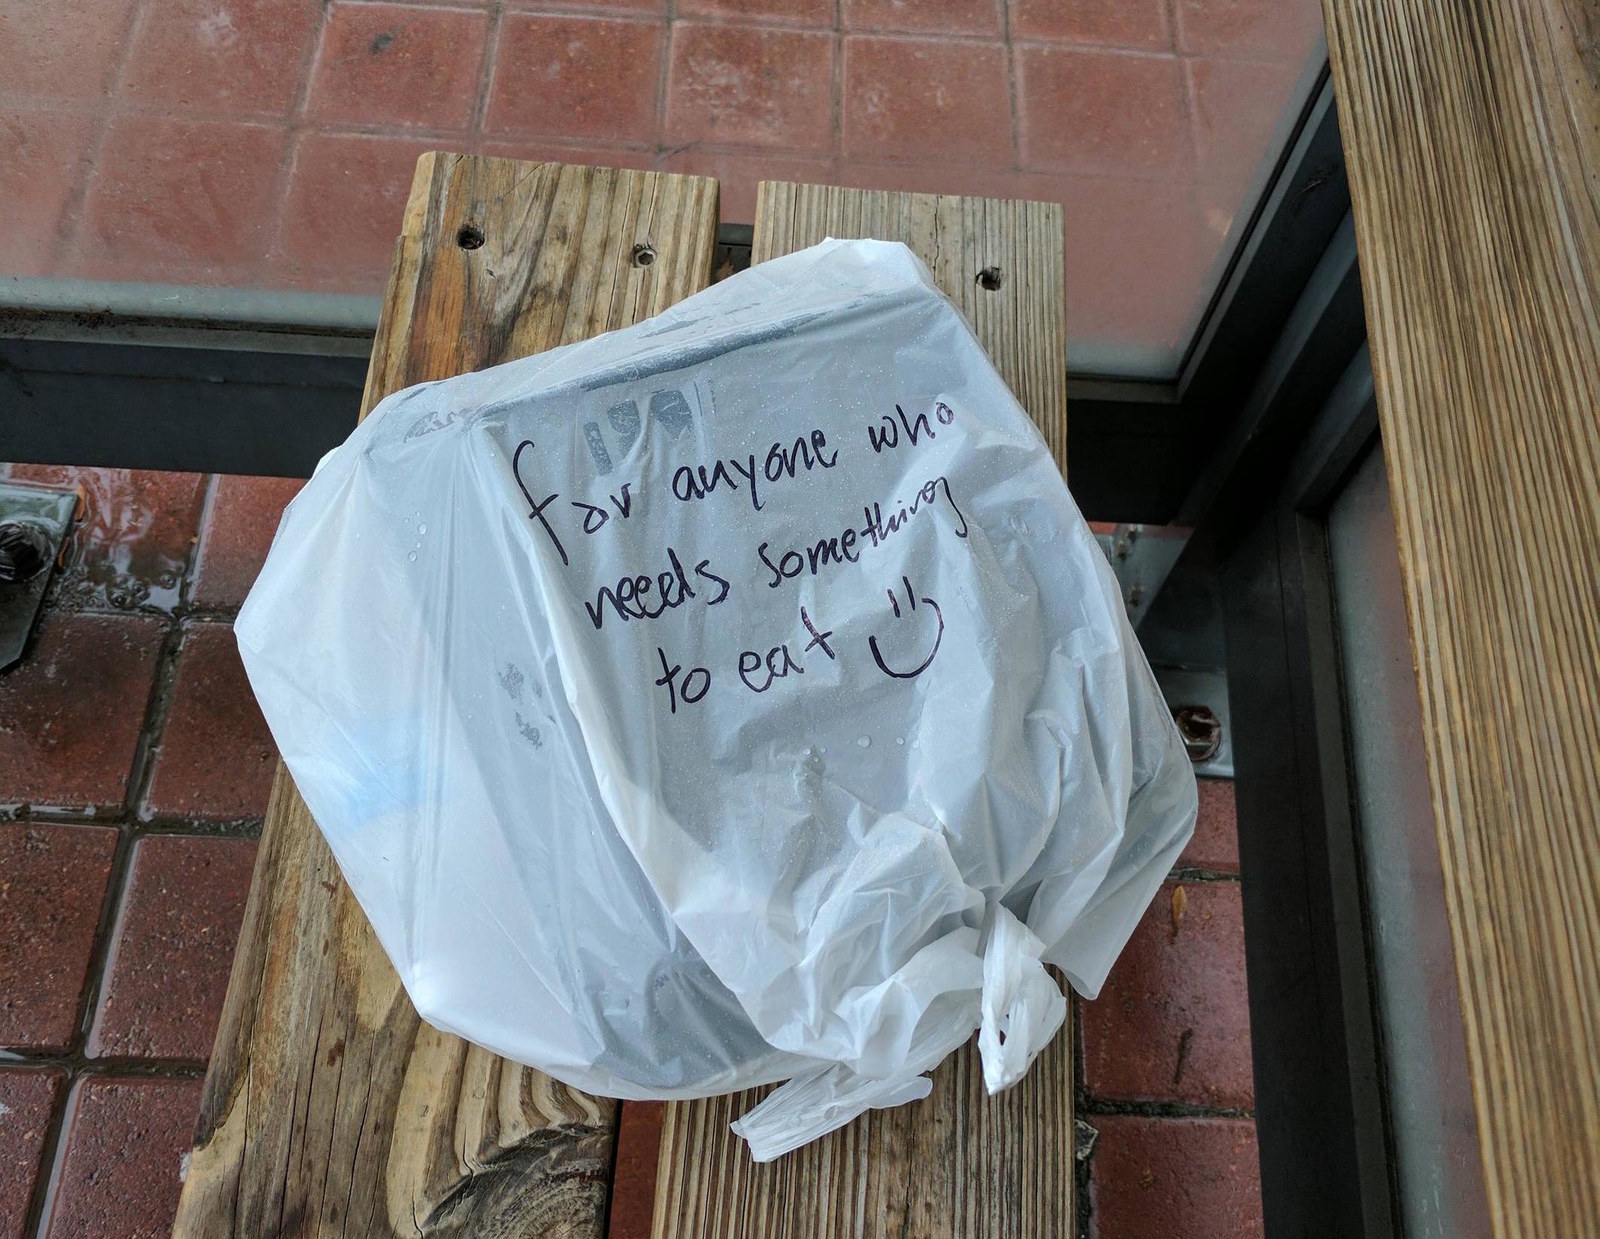 for anyone who
needs something
to eat